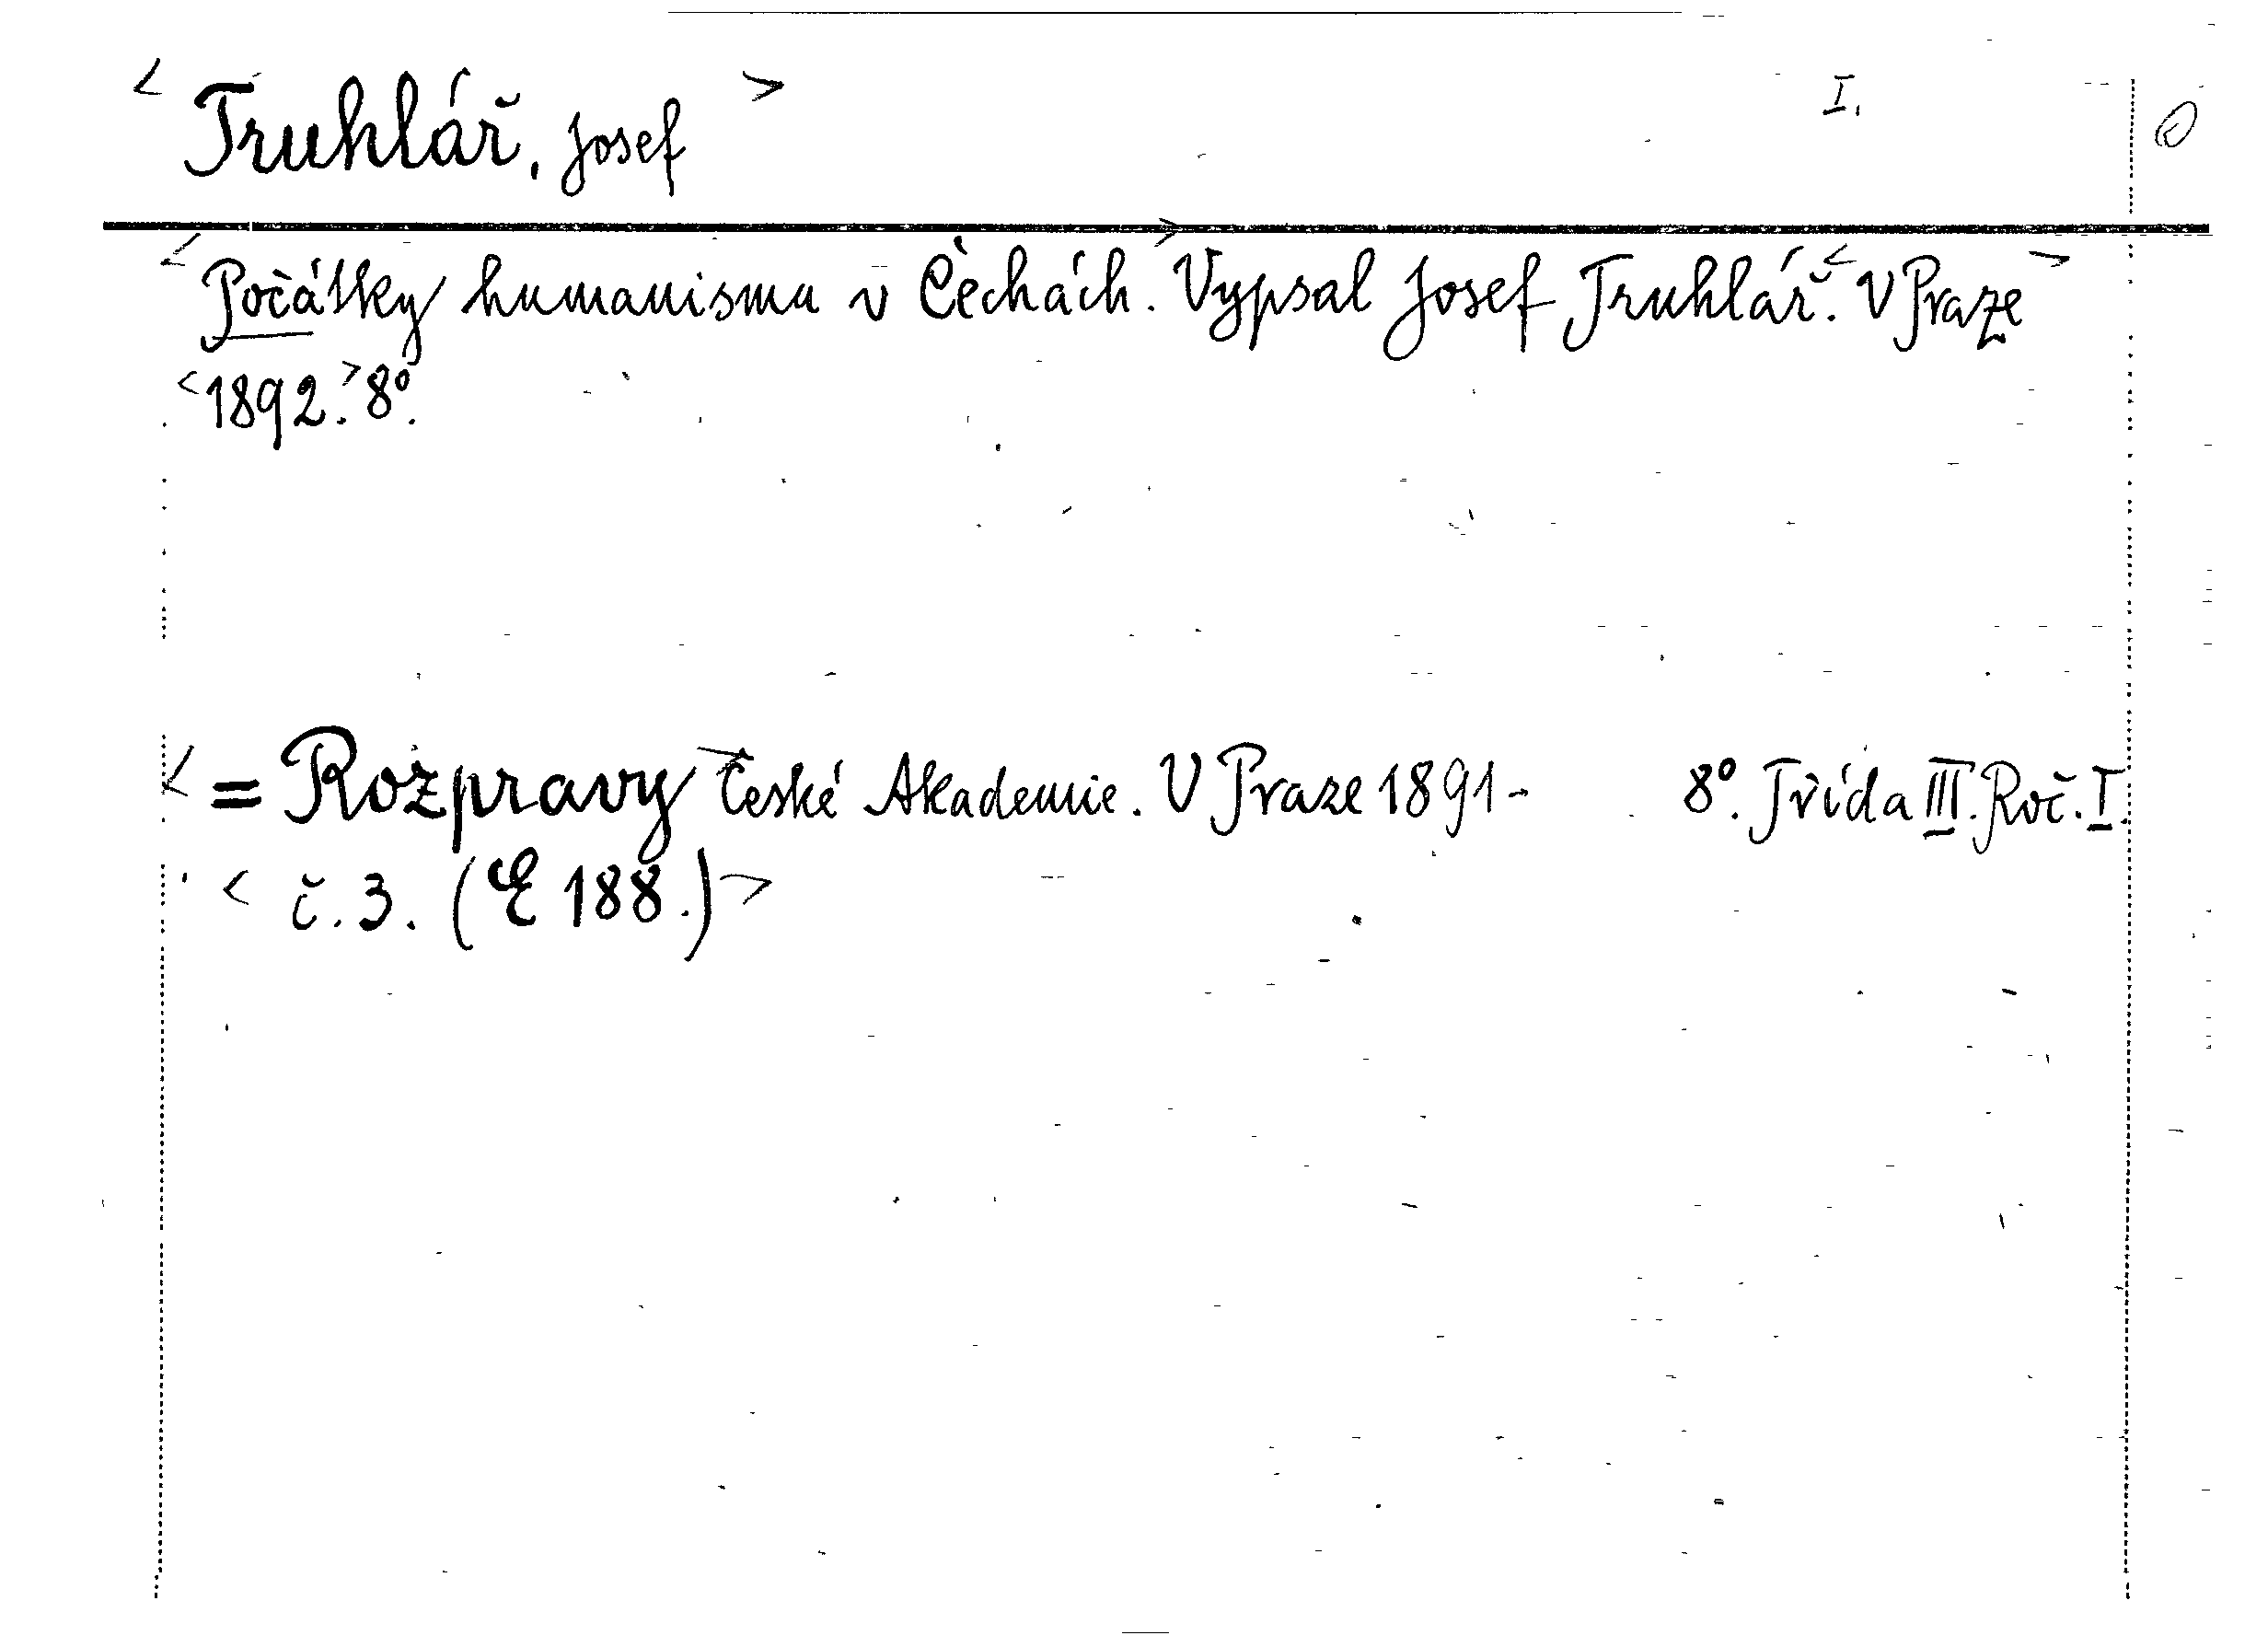 < Truhlář, Josef > I.
<Počátky humanismu v Čechách.> Vypsal Josef Truhlář. <V Praze>
<1892.> 8º.
< = Rozpravy> České Akademie. V Praze 1891- 8º. Třída III. Roč. I.
< č. 3. (E 188.) >